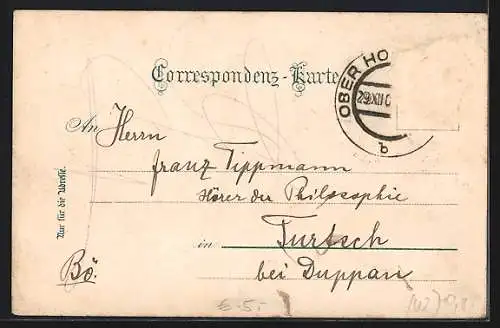 Correspondenz-Karte
OBER HO
29 XII 0
b
An Herrn
Franz Tippmann
Hörer der Philosophie
in Turtsch
bei Duppau
Bö.
Nur für die Adresse.
€ 5.-